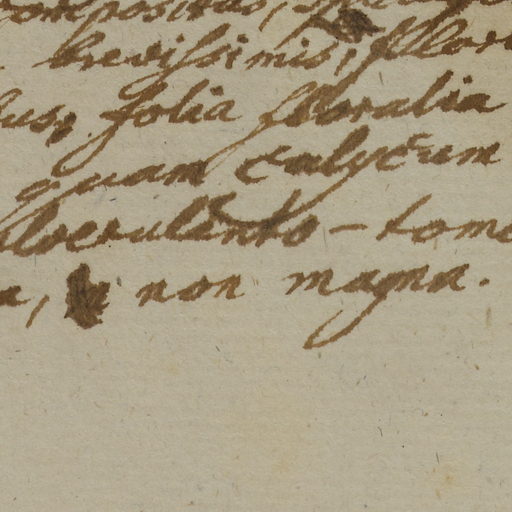 compositus,
brevissimis, flor
bus, folia floralia
quam calycum
lverulento-tome
a, non magna.